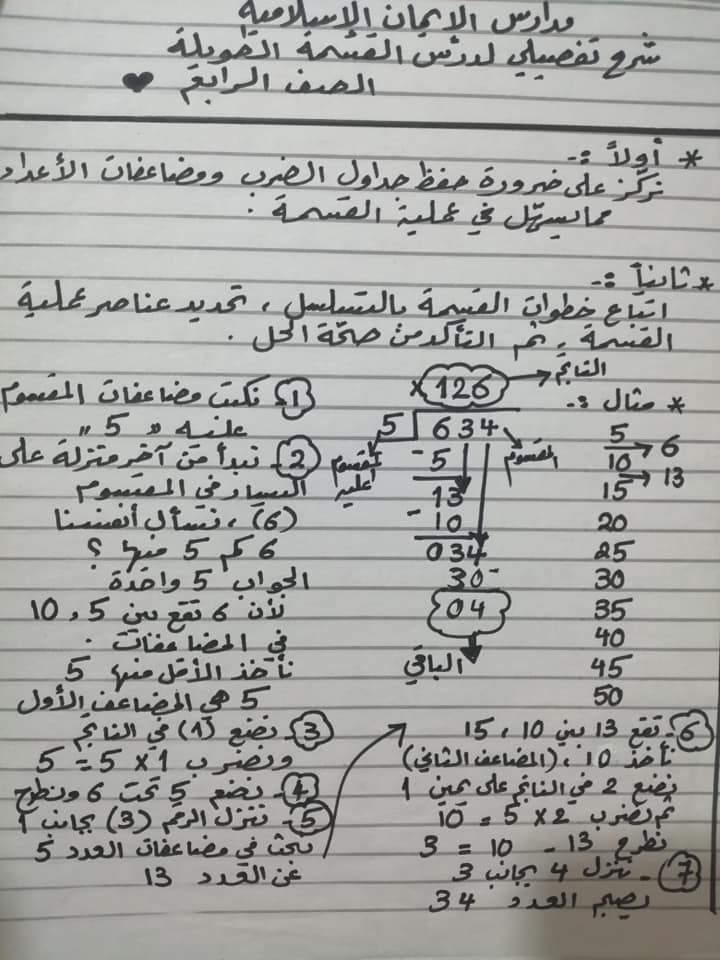 مدارس الإيمان الإسلامية
شرح تفصيلي لدرس القسمة الطويلة
الصف الرابع ♥
* أولاً :-
نركز على ضرورة حفظ جداول الضرب ومضاعفات الأعداد
مما يسهّل في عملية القسمة .
* ثانياً :-
اتباع خطوات القسمة بالتسلسل ، تحديد عناصر عملية
القسمة ، ثم التأكد من صحة الحل .
* مثال :-
5
10 → 6
15 → 13
20
25
30
35
40
45
50
الناتج
× 126
5 634
المقسوم
المقسوم عليه
- 5
13
- 10
034
30 -
04
الباقي
1 نكتب مضاعفات المقسوم
عليه " 5 "
2 - نبدأ من آخر منزلة على
اليسار في المقسوم
(6) ، نسأل أنفسنا
6 كم 5 منها ؟
الجواب 5 واحدة
لأن 6 تقع بين 5 ، 10
في المضاعفات .
نأخذ الأقل منها 5
5 هي المضاعف الأول
3 - نضع (1) في الناتج
ونضرب 1 × 5 = 5
4 - نضع 5 تحت 6 ونطرح
5 - ننزل الرقم (3) بجانب 1
نبحث في مضاعفات العدد 5
عن العدد 13
6 - تقع 13 بين 10 ، 15
نأخذ 10 ، (المضاعف الثاني)
نضع 2 في الناتج على يمين 1
ثم نضرب 2 × 5 = 10
نطرح 13 - 10 = 3
7 - ننزل 4 بجانب 3
يصبح العدد 34